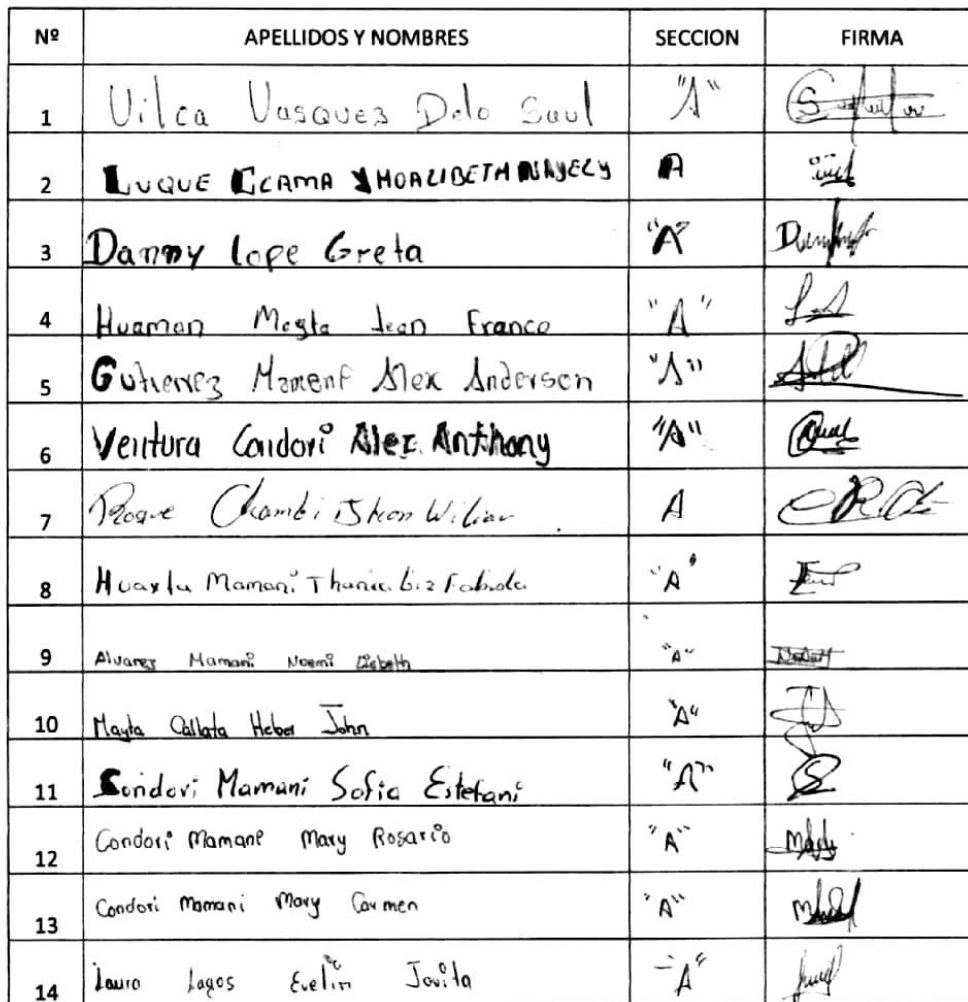 Nº APELLIDOS Y NOMBRES SECCION FIRMA
1 Vilca Vasquez Delo Saul "A"
2 LUQUE CCAMA YHORLIBETH NAYELY A
3 Danny Lope Greta "A"
4 Huaman Mayta Jean Franco "A"
5 Gutierrez Mamani Alex Anderson "A"
6 Ventura Condori Alex Anthony "A"
7 Roque Chambi Jhon Wilian A
8 Mamani Thania Liz Fabiola "A"
9 Alvarez Mamani Noemi Lisbeth "A"
10 Mayta Callata Heber John "A"
11 Condori Mamani Sofia Estefani "A"
12 Condori Mamani Mary Rosario "A"
13 Condori Mamani Mary Carmen "A"
14 Laura Lagos Evelin Jovita "A"